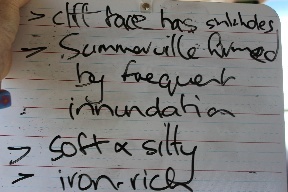 > cliff face has sulphides
> Summerville formed
by frequent
innundation
> soft & silty
> iron-rich